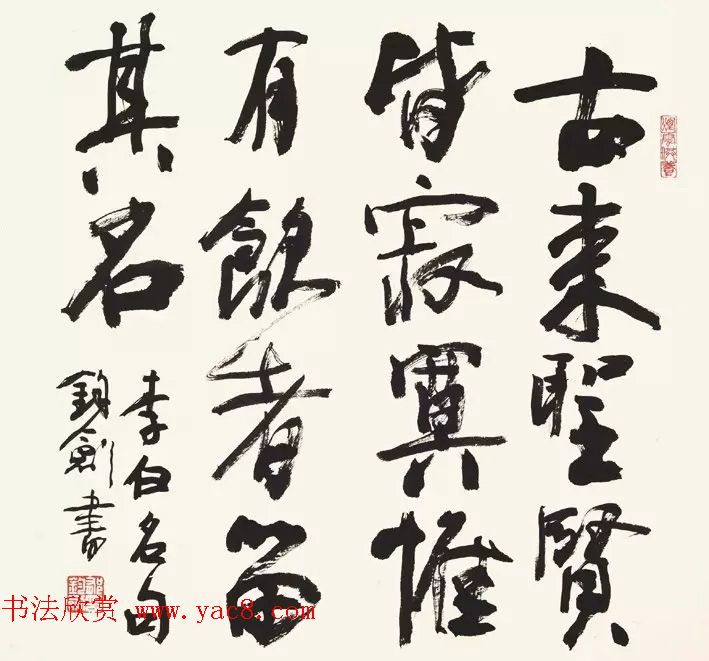 古来聖賢
皆寂寞惟
有飲者留
其名
李白名句
錦劍書
书法欣赏 www.yac8.com